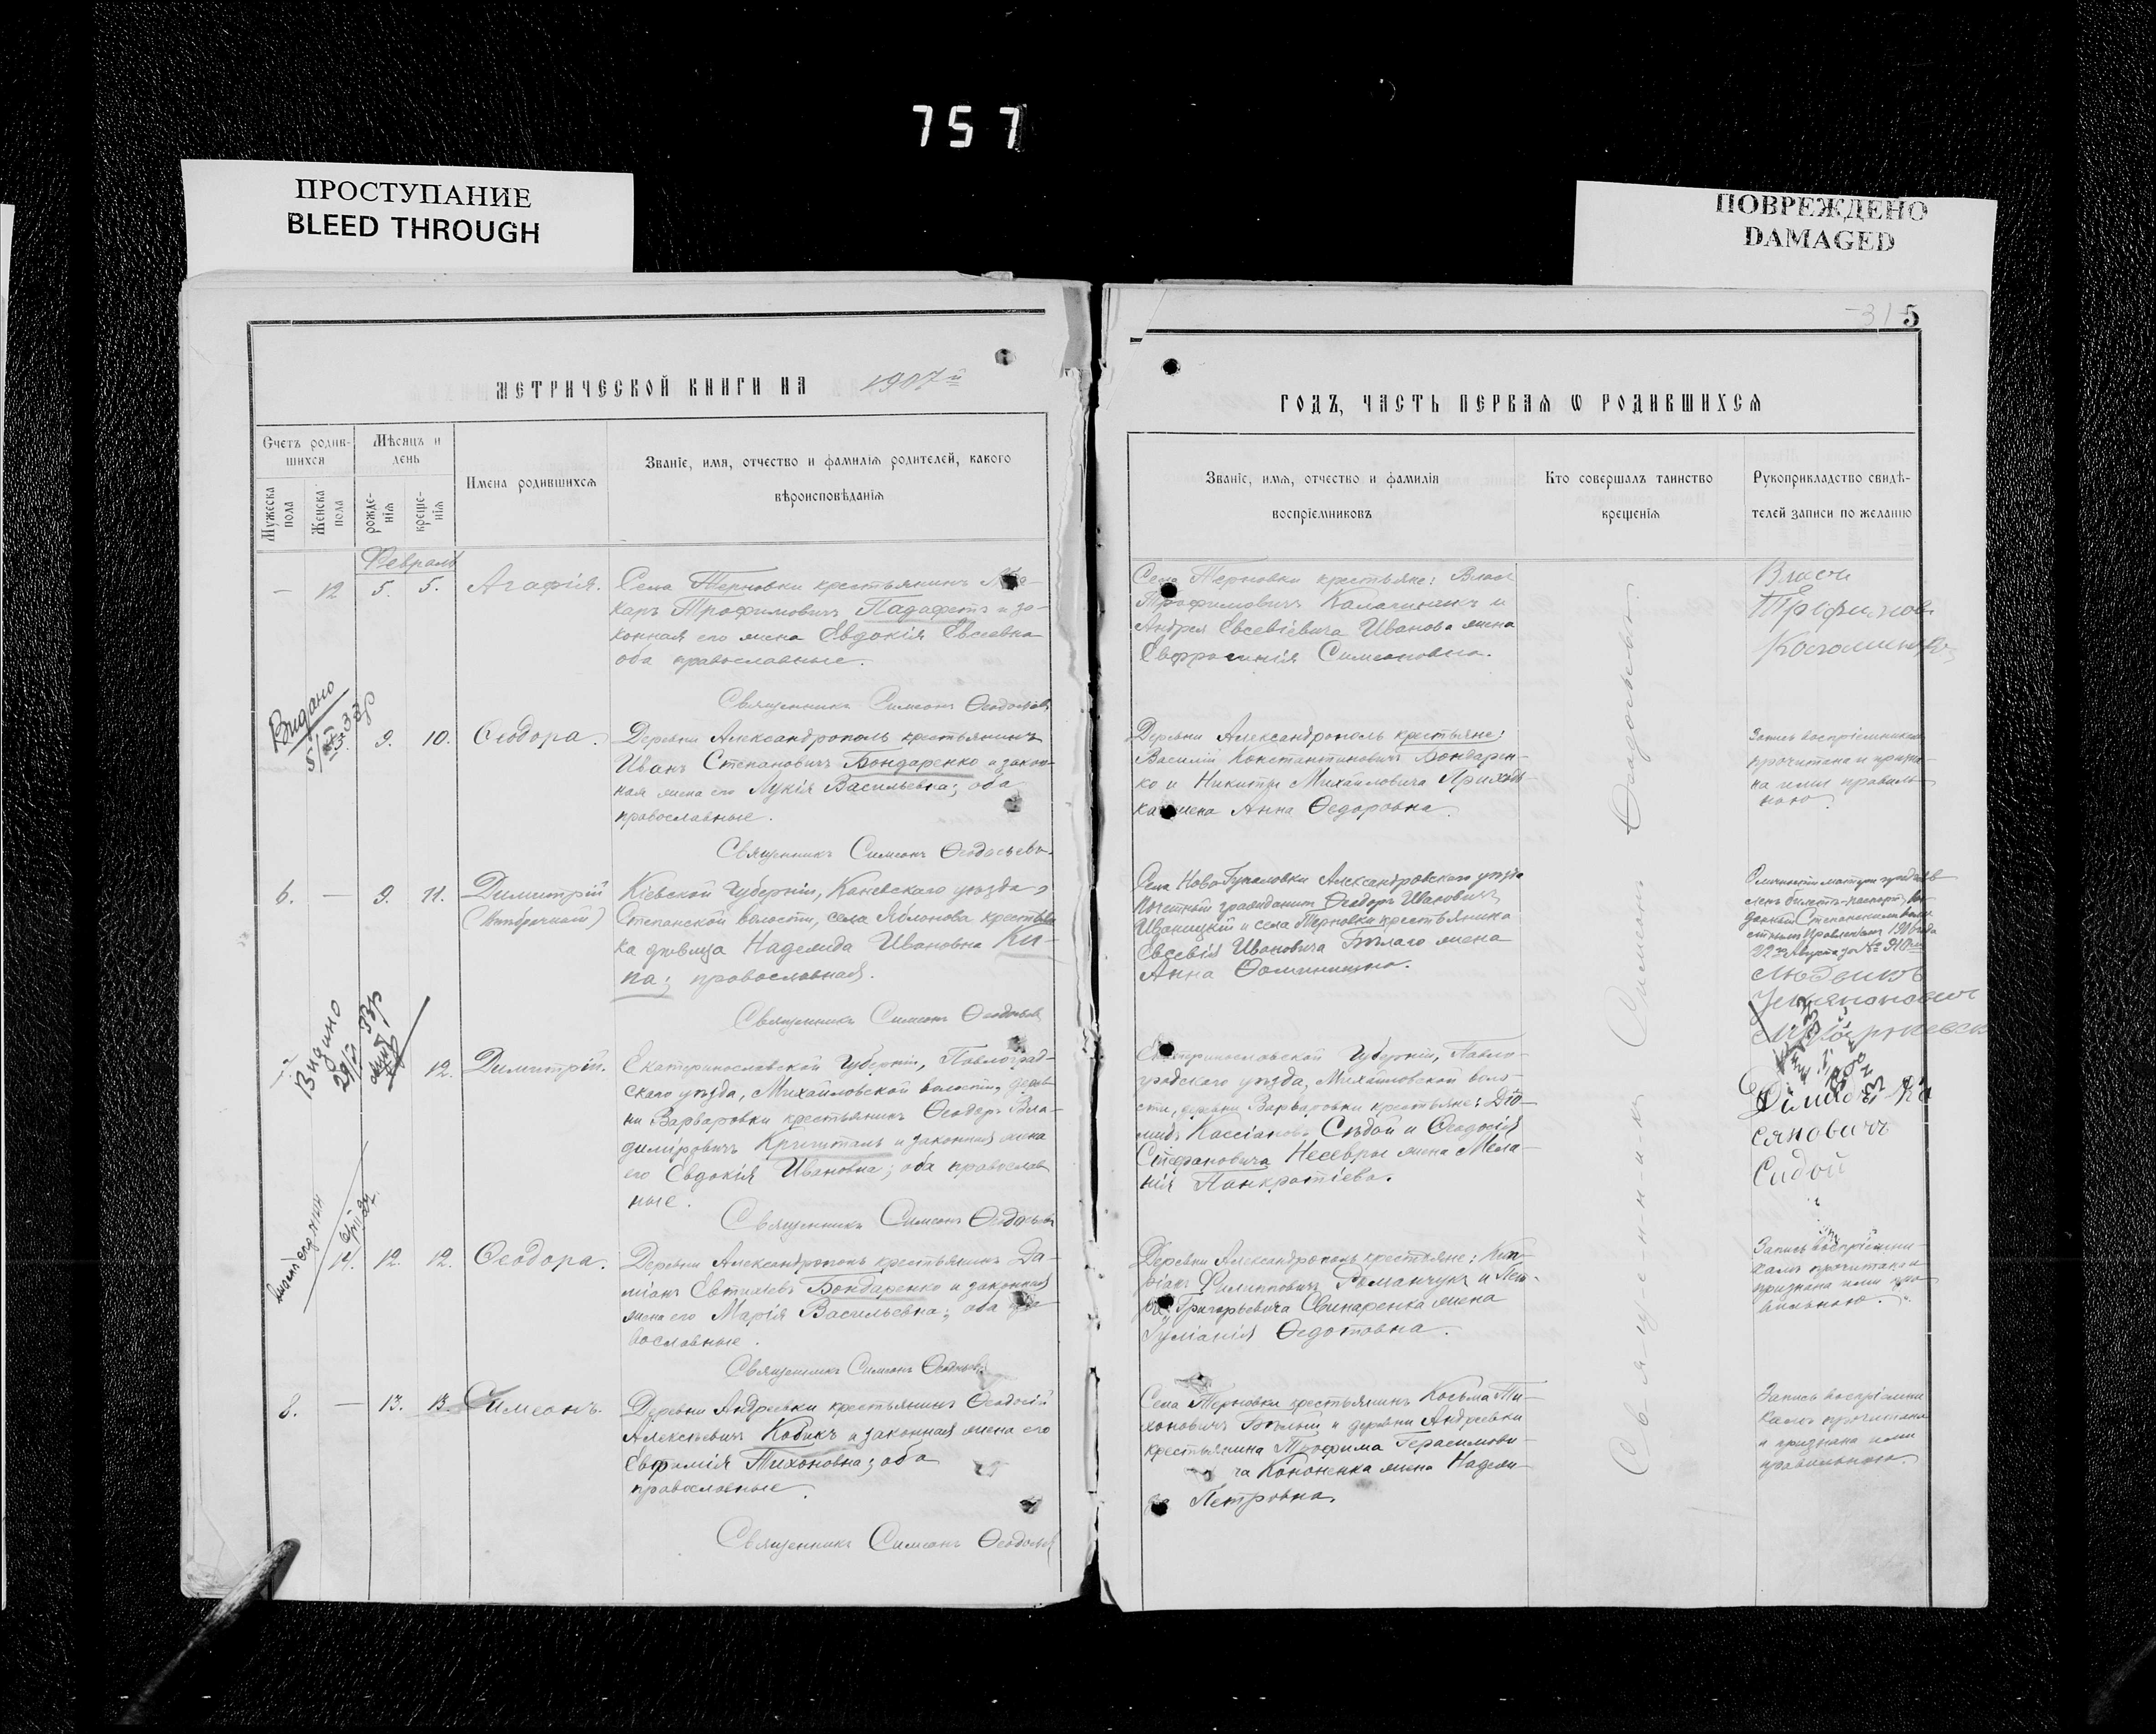 757
ПРОСТУПАНИЕ
BLEED THROUGH
ПОВРЕЖДЕНО
DAMAGED
31
5
МЕТРИЧЕСКОЙ КНИГИ НА 1907й
ГОДЪ, ЧАСТЬ ПЕРВАЯ Ѡ РОДИВШИХСЯ
Счетъ родив-
шихся
Мѣсяцъ и
день
Мужеска
пола
Женска
пола
рожде-
нія
креще-
нія
Имена родившихся
Званіе, имя, отчество и фамилія родителей, какого
вѣроисповѣданія
Званіе, имя, отчество и фамилія
воспріемниковъ
Кто совершалъ таинство
крещенія
Рукоприкладство свидѣ-
телей записи по желанію
Февраль
— 12 5. 5. Агафія.
Села Терновки крестьянинъ
каръ Трофимовичъ и за-
конная его жена Евдокія Евсеевна
оба православные.
Священникъ Симеонъ Ѳеодосьевъ
Села Терновки крестьяне: Власъ
Трофимовичъ и
Андрея Евсевіевича Иванова жена
Евфросинія Симеоновна.
Власъ
Трофимовъ
Видано
9. 10. Ѳеодора.
Деревни Александрополь крестьянинъ
Иванъ Степановичъ Бондаренко и закон-
ная жена его Лукія Васильевна; оба
православные.
Священникъ Симеонъ Ѳеодосьевъ.
Деревни Александрополь крестьяне:
Василій Константиновичъ Бондарен-
ко и Никиты Михайловича Приходь-
ка жена Анна Ѳедоровна.
Запись воспріемниками
прочитана и призна-
на ими правиль-
ною.
6. — 9. 11. Димитрій
(Внѣбрачный)
Кіевской Губерніи, Каневскаго уѣзда,
Степанской волости, села Яблонова крестьян
ка дѣвица Надежда Ивановна Ки-
па; православная.
Священникъ Симеонъ Ѳеодосьевъ
Села Ново Гупаловки Александровскаго уѣзда
Почетный гражданинъ Ѳеодоръ Ивановичъ
и села Терновки крестьянина
Евсевія Ивановича Бѣлаго жена
Анна
22го Августа за № 910
Видано
12. Димитрій.
Екатеринославской Губерніи, Павлоград-
скаго уѣзда, Михайловской волости, дерев
ни Варваровки крестьянинъ Ѳеодоръ Вла-
димировичъ и законная жена
его Евдокія Ивановна; оба православ
ные.
Священникъ Симеонъ Ѳеодосьевъ
Екатеринославской Губерніи, Павло-
градскаго уѣзда, Михайловской воло-
сти, деревни Варваровки крестьяне: Діо-
мидъ Кассіановъ Сѣдой и Ѳеодосія
Стефановича жена Мела-
нія Панкратіева.
Діамид Ка
сяновичъ
Сидой
14. 12. 12. Ѳеодора.
Деревни Александрополь крестьянинъ Да-
міанъ Евтихіевъ Бондаренко и законная
жена его Марія Васильевна; оба пра-
вославные.
Священникъ Симеонъ Ѳеодосьевъ
Деревни Александрополь крестьяне: Кип-
ріанъ Филипповичъ Романчукъ и
Григорьевича Свинаренка жена
Іуліанія Ѳедотовна.
Запись воспріемни-
ками прочитана и
признана ими пра-
вильною.
8. — 13. 13. Симеонъ.
Деревни Андреевки крестьянинъ Ѳеодосій
Алексѣевичъ Кобикъ и законная жена его
Евфимія Тихоновна; оба
православные.
Священникъ Симеонъ Ѳеодосьевъ
Села Терновки крестьянинъ Косьма Ти-
хоновичъ Бѣлый и деревни Андреевки
крестьянина Трофима Герасимови-
ча Кононенка жена Надеж-
да Петровна.
Запись воспріемни
ками прочитана
и признана ими
правильною.
Священникъ Симеонъ Ѳеодосьевъ.